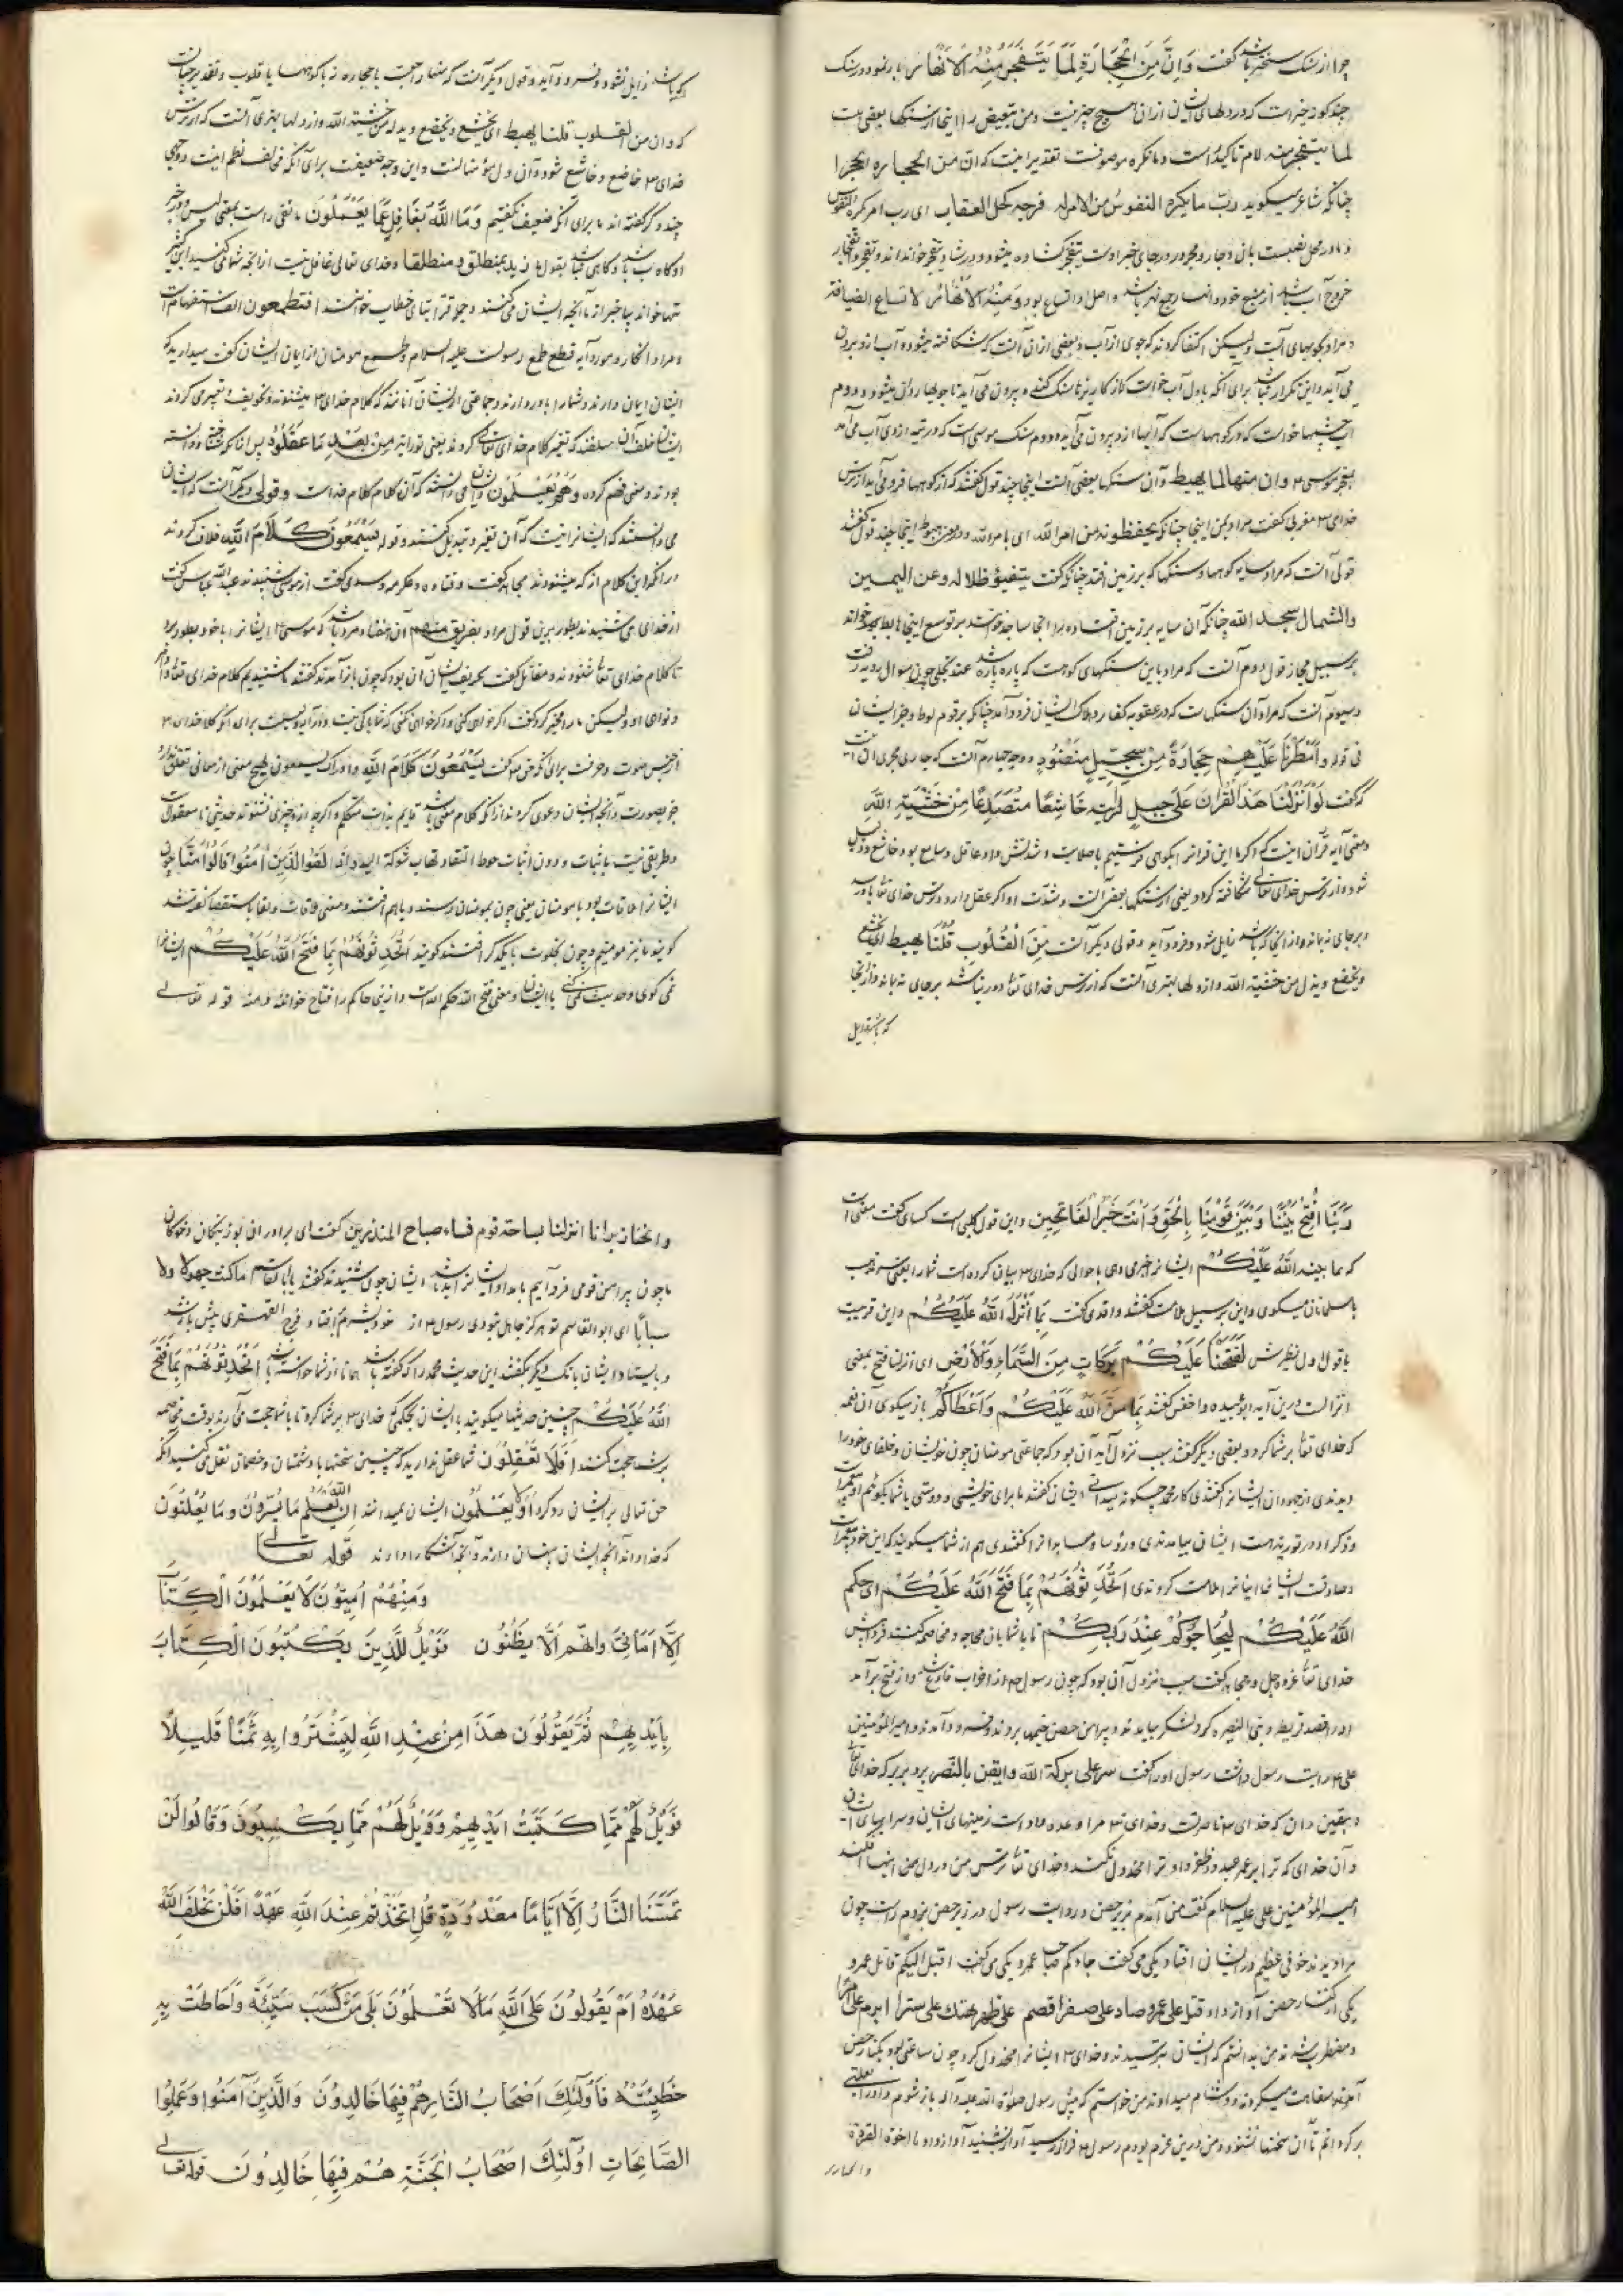 چرا از سنگ سخت تر باشد گفت وَاِنَّ مِنَ الْحِجَارَةِ لَمَا يَتَفَجَّرُ مِنْهُ الْاَنْهَارُ باز نمود در سنگ
چند گونه خیر است که در دلهای ایشان از آن هیچ چیز نیست و من تبعیض را اینجا از سنگها بعضی هست
لما یتفجر منه لام تاکید است و ما نکره موصوفست تقدیر اینست که ان من الحجارة لحجرا
چنانکه شاعر میگوید ربّ ما یکره النفوس من الامر له فرجة کحل العقال ای رب امر تکرهه النفوس
و ما در محل نصبست بان و جار و مجرور در جای خبر اوست
خروج آب باشد از منبع خود وانهار جمع نهر باشد و اصل او اتساع بود وَمِنْهُ الْاَنْهَارُ لاتساع
و مراد جویهای آبست ولیکن اکتفا کردند که جوی از آب و بعضی از آن آنست که شکافته میشود و آب از او بیرون
می آید و این تکرار نباشد برای آنکه باول آب خواست
آب چشمها خواست که در کوهها است که آبها از او بیرون می آید و دوم سنگ موسی است که در تیه از وی آب می آمد
وان منها لما یهبط و آن سنگها بعضی آنست اینجا چند قول گفتند که از کوهها فرو می آید از ترس
خدای
قولی آنست که مراد سایه کوهها و سنگها که بر زمین افتد چنانکه گفت یتفیؤ ظلاله عن الیمین
والشمائل سجد الله چنانکه آن سایه بر زمین افتاده را آنجا ساجد خواند بر توسع اینجا هابط خواند
بر سبیل مجاز قول دوم آنست که مراد باین سنگهای کوهست که پاره پاره شد عند تجلی چون موسی سوال رویت
و سیوم آنست که مراد آن سنگهاست که در عقوبه کفار و هلاک ایشان فرود آمد چنانکه بر قوم لوط و جز ایشان
فی قوله وَاَمْطَرْنَا عَلَيْهِمْ حِجَارَةً مِنْ سِجِّيلٍ مَنْضُودٍ و وجه چهارم آنست که جاری مجری آن است
که گفت لَوْ اَنْزَلْنَا هَذَا الْقُرْانَ عَلَى جَبَلٍ لَرَاَيْتَهُ خَاشِعًا مُتَصَدِّعًا مِنْ خَشْيَةِ اللهِ
و معنی آیه قرآن اینست که اگر ما این قران را بکوهی فرستیم با صلابت و شدتش و او عاقل و سامع بود خاشع و ذلیل
شود و از ترس خدای تعالی شکافته گردد یعنی از سنگها بعضی آنست و شدت او اگر عقل دارد و ترس خدای
بر جای نماند و از آنجا که باشد زایل شود و فرود آید و قولی دیگر آنست مِنَ الْقُلُوبِ قُلْنَا یهبط ای یخشع
ویخضع ویذل من خشیة الله و از دلها بهری آنست که از ترس خدای تعالی در دنیا باشد بر جای نماند و از آنجا
که باشد زایل
که باشد زایل نشود و فرود آید و قول دیگر آنست که منها راجعست با حجاره نه با کوهها یا قلوب و تقدیر چنانست
که وان من القلوب قلنا یهبط ای یخشع ویخضع ویذل من خشیة الله و از دلها بهری آنست که از ترس
خدای خاضع و خاشع شود و آن دل مؤمنانست و این وجه ضعیفست برای آنکه مخالف نظم اینست و وجهی
چند دگر گفته اند ما برای آنکه ضعیف نگفتیم وَمَا اللهُ بِغَافِلٍ عَمَّا يَعْمَلُونَ ما نفی راست بمعنی لیس و خبر
او گاه با باشد و گاهی نباشد بقول ما زید بمنطلق و منطلقا و خدای تعالی غافل نیست از آنچه شما می کنید ابن کثیر
تنها خواند بیا خبر از آنچه ایشان می کنند و جمله قرا بتای خطاب خوانند افتطمعون الف استفهام است
و مراد انکار و مورد آیه قطع طمع رسولست علیه السلام و طمع مومنان از ایمان ایشان گفت میدارید که
ایشان ایمان دارند و شما را باور دارند و جماعتی از ایشان آنانند که کلام خدای میشنوند و تحریف و تغییر می کردند
مِنْ بَعْدِ مَا عَقَلُوهُ پس از آنکه شناخته و دانسته
بودند و معنی فهم کرده وَهُمْ يَعْلَمُونَ و ایشان می دانستند که آن کلام کلام خداست و قولی دیگر آنست که ایشان
می دانستند که ایشانرا نیست که آن تغییر و تبدیل کنند و قوله يَسْمَعُونَ كَلَامَ اللهِ خلاف کردند
در آنکه این کلام از که میشنودند مجاهد گفت و قتاده و عکرمه و سدی گفت از موسی شنیدند عبدالله عباس گفت
از خدای می شنیدند بطور برین قول مراد بفریق منهم آن هفتاد مرد باشند که موسی ایشانرا با خود بطور برد
تا کلام خدای تعالی شنودند و مقاتل گفت تحریف ایشان آن بود که چون باز آمدند گفتند ما شنیدیم کلام خدای تعالی و اوامر
و نواهی او ولیکن ما را مخیر کرد و گفت اگر خواهی کنی و اگر خواهی نکنی که شما را باکی نیست
از جنس صوت و حرفست برای آنکه حق تعالی گفت يَسْمَعُونَ كَلَامَ اللهِ و ادراک یسمعون هیچ معنی از معانی تعلق ندارد
جز بصوت و آنچه ایشان دعوی کردند از آنکه کلام معنی باشد قایم بذات متکلم
وَاِذَا لَقُوا الَّذِينَ اٰمَنُوا قَالُوا اٰمَنَّا چون
ایشانرا ملاقات بود با مومنان یعنی چون بمومنان رسند و با هم افتند
گویند ما نیز مومنیم و چون بخلوت با یکدگر افتند گویند اَتُحَدِّثُونَهُمْ بِمَا فَتَحَ اللهُ عَلَيْكُمْ ایشانرا
نمی گوی و حدیث می کنی با ایشان و معنی فتح الله حکم الله است و از اینجا حاکم را فتاح خوانند ومنه قوله تعالی
رَبَّنَا افْتَحْ بَيْنَنَا وَبَيْنَ قَوْمِنَا بِالْحَقِّ وَاَنْتَ خَيْرُ الْفَاتِحِينَ و این قول کلبی است کسای گفت معنی آنست
که بما بینه اللهُ عَلَيْكُمْ ایشانرا خبر می دهی باحوالی که خدای بیان کرده است شما را
با مسلمانان میگوی و این بر سبیل ملامت گفتند واقدی گفت بِمَا اَنْزَلَ اللهُ عَلَيْكُمْ و این قریب است
با قول اول نظیرش لَفَتَحْنَا عَلَيْكُمْ بَرَكَاتٍ مِنَ السَّمَاءِ وَالْاَرْضِ ای انزلنا فتح بمعنی
انزالست درین آیه ابو عبیده و اخفش گفتند بِمَا مَنَّ اللهُ عَلَيْكُمْ وَاَعْطَاكُمْ باز میگوی آن نعمه
که خدای تعالی بر شما کرد و بعضی دیگر گفتند سبب نزول آیه آن بود که جماعتی مومنان چون خویشان و حلفای خود را
دیدندی از جهودان ایشانرا گفتندی کار محمد چگونه میدانی ایشان گفتند ما برای خویشی و دوستی با شما بگوئیم او پیغمبر است
و ذکر او در توریة هست ایشان بیامدندی و رؤسا و صحابه را گفتندی هم از شما میگویند که این خود پیغمبر است
و صادقست ایشان اینانرا ملامت کردندی اَتُحَدِّثُونَهُمْ بِمَا فَتَحَ اللهُ عَلَيْكُمْ ای حکم
اللهُ عَلَيْكُمْ لِيُحَاجُّوكُمْ عِنْدَ رَبِّكُمْ تا با شما بآن محاجه و مخاصمه کنند فردا پیش
خدای تعالی عز و جل و مجاهد گفت سبب نزول آن بود که چون رسول از احزاب فارغ شد و از فتح برآمد
او را قصد قریظه و بنی النضیر کرد لشکر بیامدند و پیرامن حصن خیمها بزدند و فرود آمدند و امیرالمؤمنین
علی رایت رسول داشت رسول او را گفت سر علی برکة الله وایقن بالنصر برو ببر برکه خدای تعالی
و بیقین دان که خدای ناصر تست و خدای مرا وعده داده است زمینهای ایشان و سراهای ایشان
و آن خدای که ترا بر عمرو عبدود ظفر داد ترا مخذول نکند و خدای تعالی ترس من در دل من اینها افکند
امیرالمؤمنین علی علیه السلام گفت من آمدم بزیر حصن و رایت رسول در زیر حصن بزدم راست چون
مرا دیدند خوفی عظیم در ایشان افتاد یکی می گفت جاءکم صاحب عمرو یکی می گفت اقبل الیکم قاتل عمرو
یکی از کنار حصن آواز داد قتل علی عمرو صاد علی صقرا قصم علی ظهر هتک علی سترا ابرم علی امرا
و مضطرب شدند من بدانستم که ایشان بترسیدند و خدای ایشانرا مخذول کرد چون ساعتی بود بکنار حصن
آمدند و سفاهت میکردند و دشنام میدادند من خواستم که پیش رسول صلوات الله علیه وآله باز شوم و او را
برگردانم تا آن سخنها نشنود و من درین عزم بودم رسول فراز رسید آواز شنید آواز داد یا اخوة القردة
والخنازیر
والخنازیر انا انزلنا بساحة قوم فساء صباح المنذرین گفت ای برادران بوزینگان و خوکان
ما چون پیرامن قومی فرود آییم بامداد ایشان بد باشد ایشان چون شنیدند گفتند یا ابالقاسم ما کنت جهولا ولا
سبابا ای ابوالقاسم تو هرگز جاهل نبودی رسول از خود بشرم افتاد و
و بایستاد ایشان با یک دیگر گفتند این حدیث محمد را که گفته باشد همانا از شما خواسته باشد اَتُحَدِّثُونَهُمْ بِمَا فَتَحَ
اللهُ عَلَيْكُمْ چنین حدیثها میگویند با ایشان بحکمی که خدای بر شما کرد تا با شما حجت می آرند بوقت مخاصمه
بر شما حجت کنند اَفَلَا تَعْقِلُونَ شما عقل ندارید که چنین سخنها با دشمنان و خصمان نقل می کنید آنگه
حق تعالی بر ایشان رد کرد اَوَلَا يَعْلَمُونَ ایشان نمیدانند اِنَّ اللهَ يَعْلَمُ مَا يُسِرُّونَ وَمَا يُعْلِنُونَ
که خدا داند آنچه ایشان پنهان دارند و آنچه آشکارا دارند قوله تعالی
وَمِنْهُمْ اُمِّيُّونَ لَا يَعْلَمُونَ الْكِتَابَ
اِلَّا اَمَانِيَّ وَاِنْهُمْ اِلَّا يَظُنُّونَ فَوَيْلٌ لِلَّذِينَ يَكْتُبُونَ الْكِتَابَ
بِاَيْدِيهِمْ ثُمَّ يَقُولُونَ هَذَا مِنْ عِنْدِ اللهِ لِيَشْتَرُوا بِهِ ثَمَنًا قَلِيلًا
فَوَيْلٌ لَهُمْ مِمَّا كَتَبَتْ اَيْدِيهِمْ وَوَيْلٌ لَهُمْ مِمَّا يَكْسِبُونَ وَقَالُوا لَنْ
تَمَسَّنَا النَّارُ اِلَّا اَيَّامًا مَعْدُودَةً قُلْ اَتَّخَذْتُمْ عِنْدَ اللهِ عَهْدًا فَلَنْ يُخْلِفَ اللهُ
عَهْدَهُ اَمْ يَقُولُونَ عَلَى اللهِ مَا لَا تَعْلَمُونَ بَلَى مَنْ كَسَبَ سَيِّئَةً وَاَحَاطَتْ بِهِ
خَطِيئَتُهُ فَاُولٰئِكَ اَصْحَابُ النَّارِ هُمْ فِيهَا خَالِدُونَ وَالَّذِينَ آمَنُوا وَعَمِلُوا
الصَّالِحَاتِ اُولٰئِكَ اَصْحَابُ الْجَنَّةِ هُمْ فِيهَا خَالِدُونَ قوله تعالی